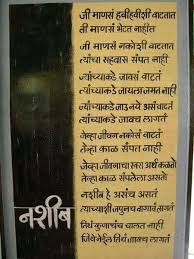 जी माणसं हवीहवीशी वाटतात
ती माणसं भेटत नाहीत
जी माणसं नकोशी वाटतात
त्यांचा सहवास संपत नाही
ज्यांच्याकडे जावसं वाटतं
त्यांच्याकडे जायला जमत नाही
ज्यांच्याकडे जाऊ नये असं वाटतं
त्यांच्याकडे जावंच लागतं
जेव्हा जीवन नकोसं वाटतं
तेव्हा काळ संपत नाही
जेव्हा जीवनाचा खरा अर्थ कळतो
तेव्हा काळ संपलेला असतो
नशीब हे असंच असतं
त्याच्याशी जपूनच वागावं लागतं
तिथं कुणाचंच चालत नाही
जिथे नेईल तिथं जावंच लागतं
नशीब